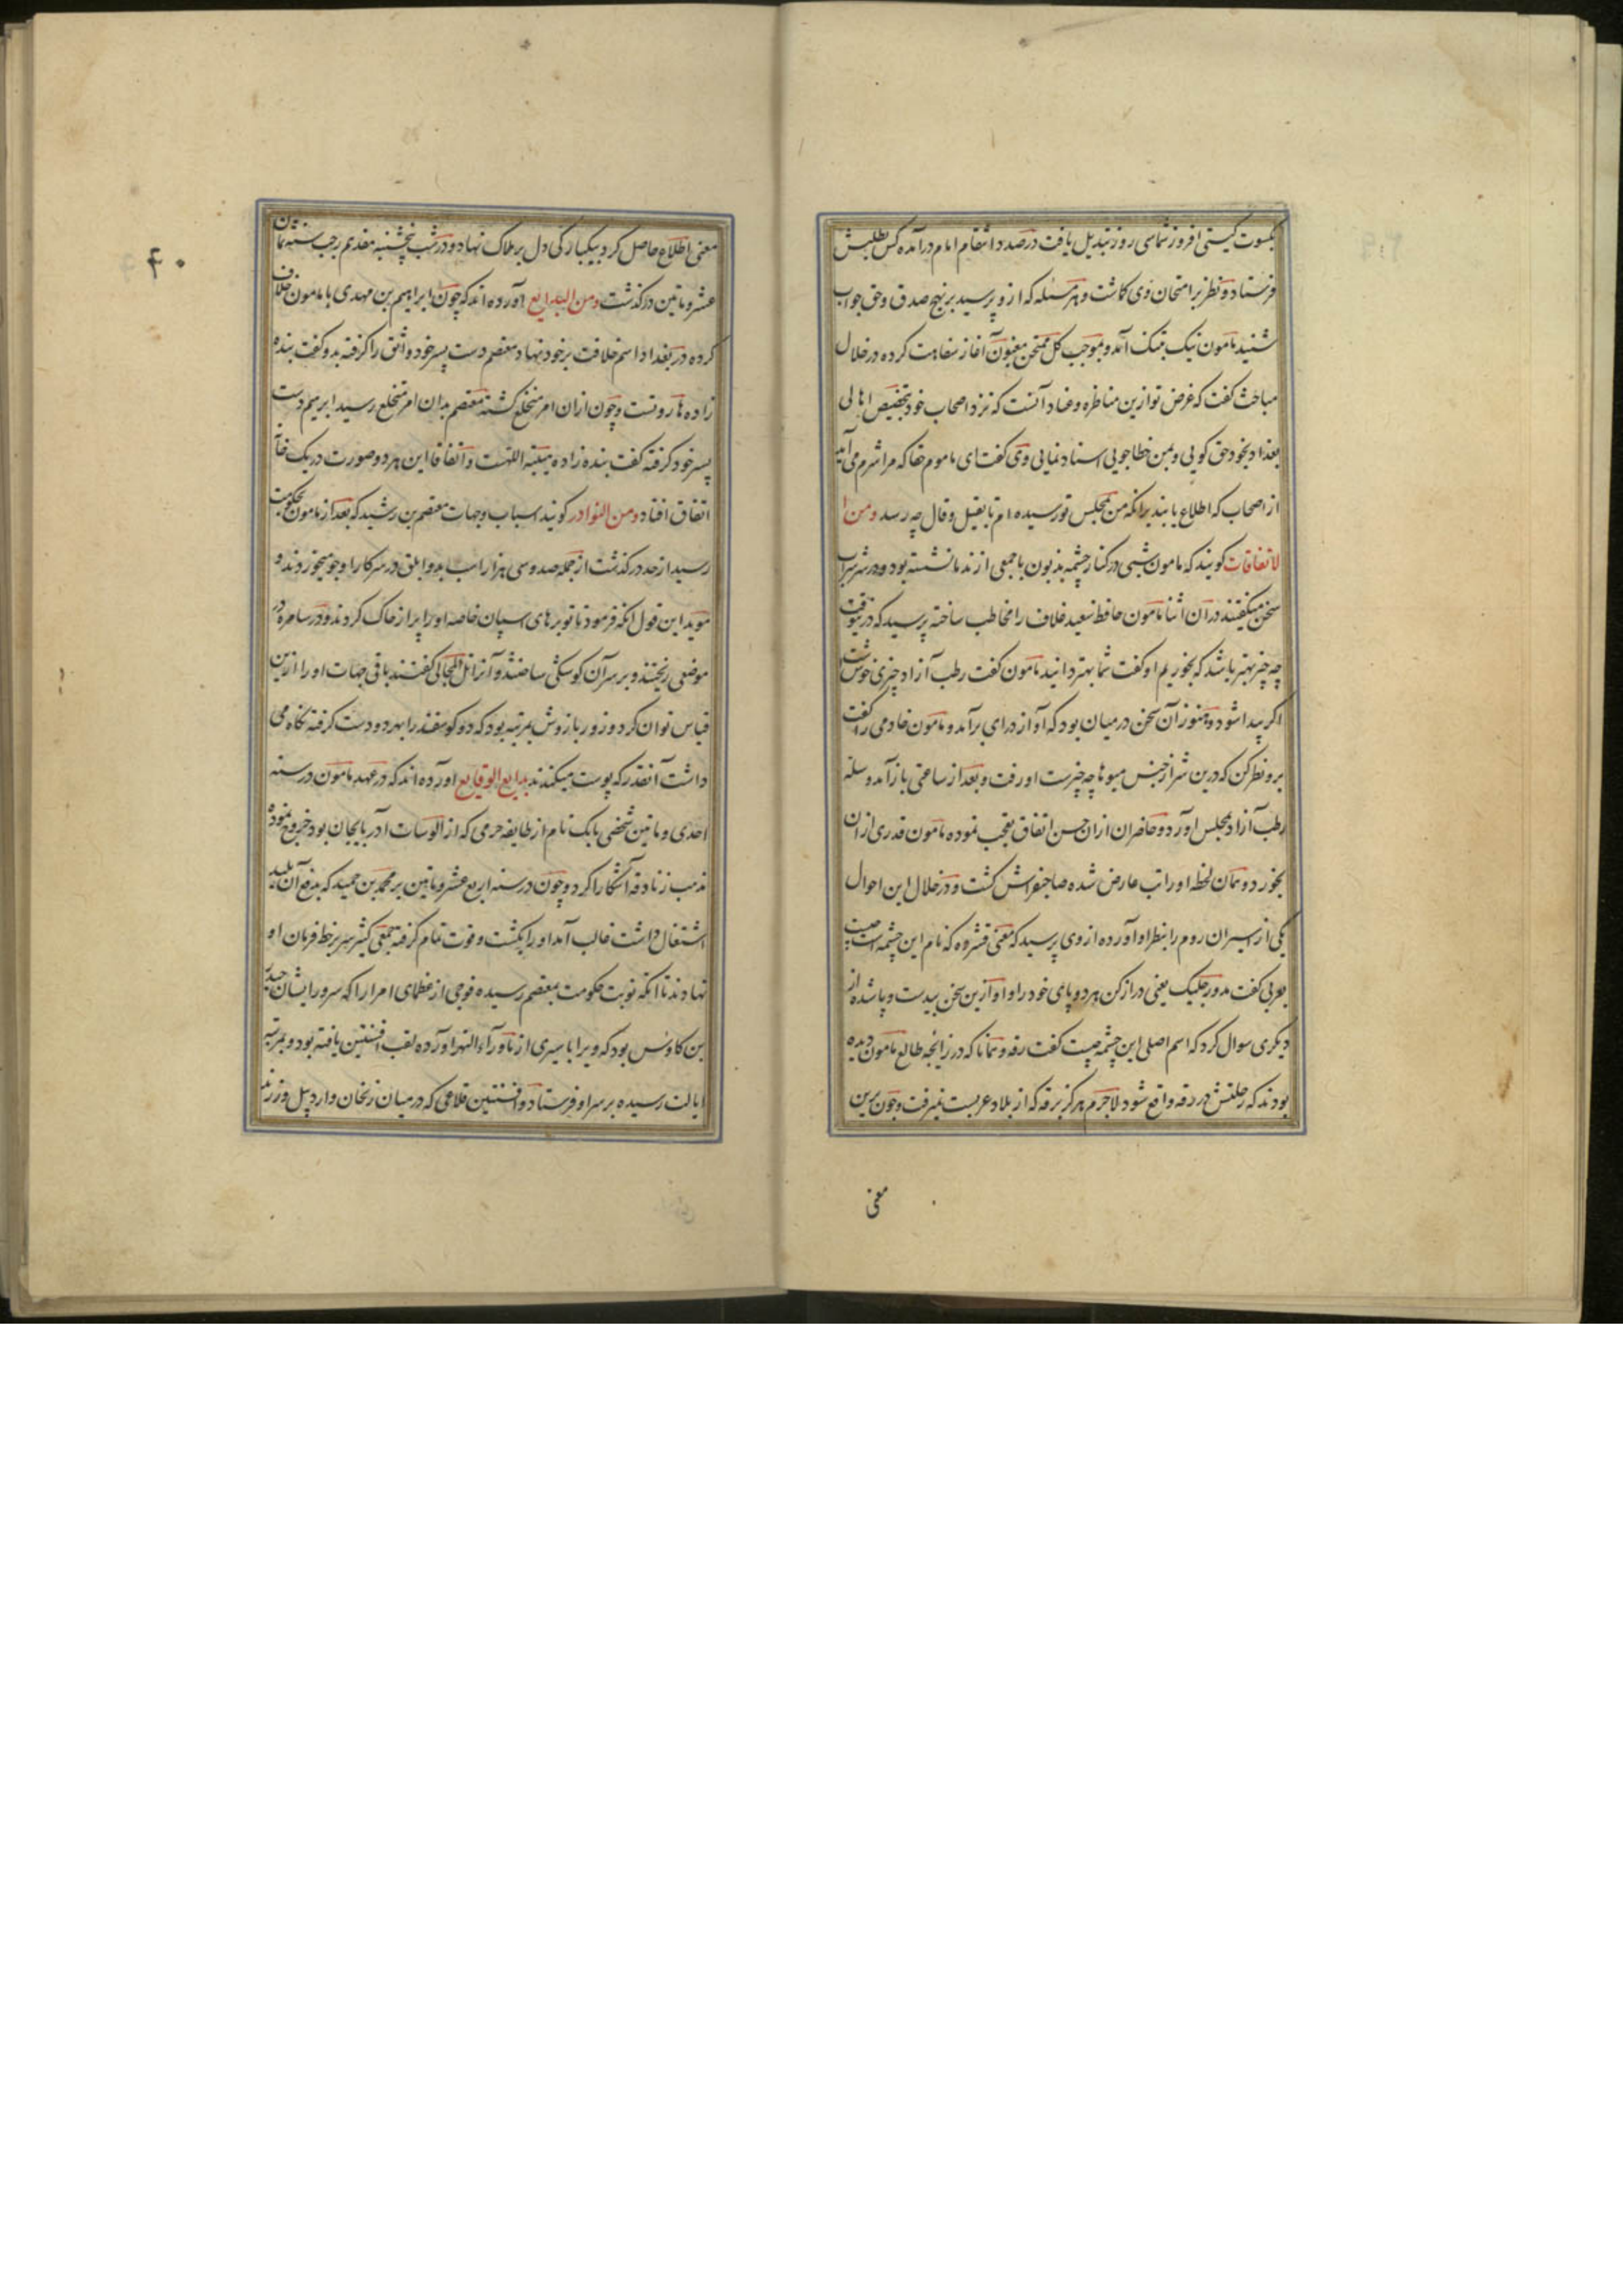 بکسوت کیستی افروز شماسی روز تبدیل یافت درصدد انتقام امام درآمده کس بطلبش
فرستاد و نظر بر امتحان وی کاشت و هر مسئله که ازو پرسید بر نهج صدق و حق جواب
شنید مامون نیک بتنک آمد و بموجب کل ممتحن مغبون آغاز سفاهت کرده در خلال
مباحث کفت که غرض تو ازین مناظره و عناد آنست که نزد اصحاب خود بتخصیص اهالی
بغداد بخود حق کویی و بمن خطا جویی اسناد نمایی وی کفت ای ماموم حقا که مرا شرم می آید
از اصحاب که اطلاع یابند برانکه من بمجلس تو رسیده ام تا بقیل و قال چه رسد ومن ا
لاتفاقات کویند که مامون شبی در کنار چشمه بذبون با جمعی از ندما نشسته بود و در هر باب
سخن میکفتند در آن اثنا مامون حافظ سعید علاف را مخاطب ساخته پرسید که درین وقت
چه چیز بهتر باشد که بخوریم او کفت شما بهتر دانید مامون کفت رطب آزاد چیزی خوش است
اکر پیدا شود و هنوز آن سخن در میان بود که آواز درای برآمد و مامون خادمی را کفت
برو نظر کن که درین شتر از جنس میوها چه چیزست او رفت و بعد از ساعتی باز آمد و سله
رطب آزاد بمجلس آورد و حاضران ازان حسن اتفاق تعجب نموده مامون قدری ازان
بخورد و همان لحظه او را تب عارض شده صاحبفراش کشت و در خلال این احوال
یکی از اسیران روم را بنظر او آورده از وی پرسید که معنی قشیره که نام این چشمه است چیست
بعربی کفت مد ورجلیک یعنی دراز کن هر دو پای خود را و او ازین سخن بیدست و پا شده از
دیکری سوال کرد که اسم اصلی این چشمه چیست کفت رقه و همانا که در زایجه طالع مامون دیده
بودند که رحلتش در رقه واقع شود لاجرم هرکز برقه که از بلاد عربست نمیرفت و چون برین
معنی
۴۰
معنی اطلاع حاصل کرد بیکبارکی دل بر هلاک نهاد و در شب پنجشنبه هفدهم رجب سنه ثمان
عشر و ماتین درکذشت ومن البدایع آورده اند که چون ابراهیم بن مهدی با مامون خلاف
کرده در بغداد اسم خلافت بر خود نهاد معتصم دست پسر خود واثق را کرفته بدو کفت بنده
زاده هارونست و چون ازان امر منخلع کشته معتصم بدان امر متخلع رسید ابرهیم دست
پسر خود کرفته کفت بنده زاده هیبته اللهست و اتفاقا این هر دو صورت در یک خانه
اتفاق افتاد ومن النوادر کویند اسباب و جهات معتصم بن رشید که بعد از مامون بحکومت
رسید از حد درکذشت از جمله صد و سی هزار اسب بدو ابلق در سرکار او جو میخوردند و
موید این قول آنکه فرمود تا توبرهای اسپان خاصه او را پر از خاک کردند و در سامره در
موضعی ریختند و بر سر آن کوسکی ساختند و آنرا تل المخالی کفتند باقی جهات او را ازین
قیاس توان کرد و زور بازوش بمرتبه بود که دو کوسفند را بهر دو دست کرفته نکاه می
داشت آنقدر که پوست میکندند بدایع الوقایع آورده اند که در عهد مامون در سنه
احدی و ماتین شخصی بابک نام از طایفه خرمی که از الوسات آذربایجان بود خروج نموده
مذهب زنادقه آشکارا کرد و چون در سنه اربع عشر و ماتین بر محمد بن حمید که بدفع آن پلید
اشتغال داشت غالب آمد او را بکشت و قوت تمام کرفته جمعی کثیر سر بر خط فرمان او
نهادند تا آنکه نوبت حکومت بمعتصم رسیده فوجی از عظمای امرا را که سرور ایشان حیدر
بن کاوس بود که ویرا باسیری از ماورآء النهر آورده لقب افشین یافته بود و بمرتبه
ایالت رسیده بر سر او فرستاد و افشین قلاعی که در میان زنجان و اردبیل و زرند